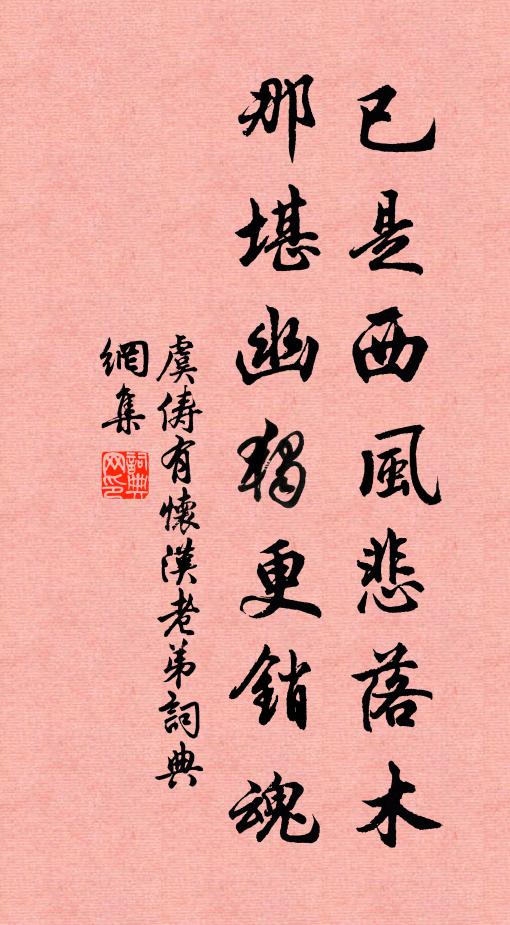 已是西風悲落木
那堪幽獨更銷魂
虞儔有懷漢老弟詞典
網集
詞典
网印